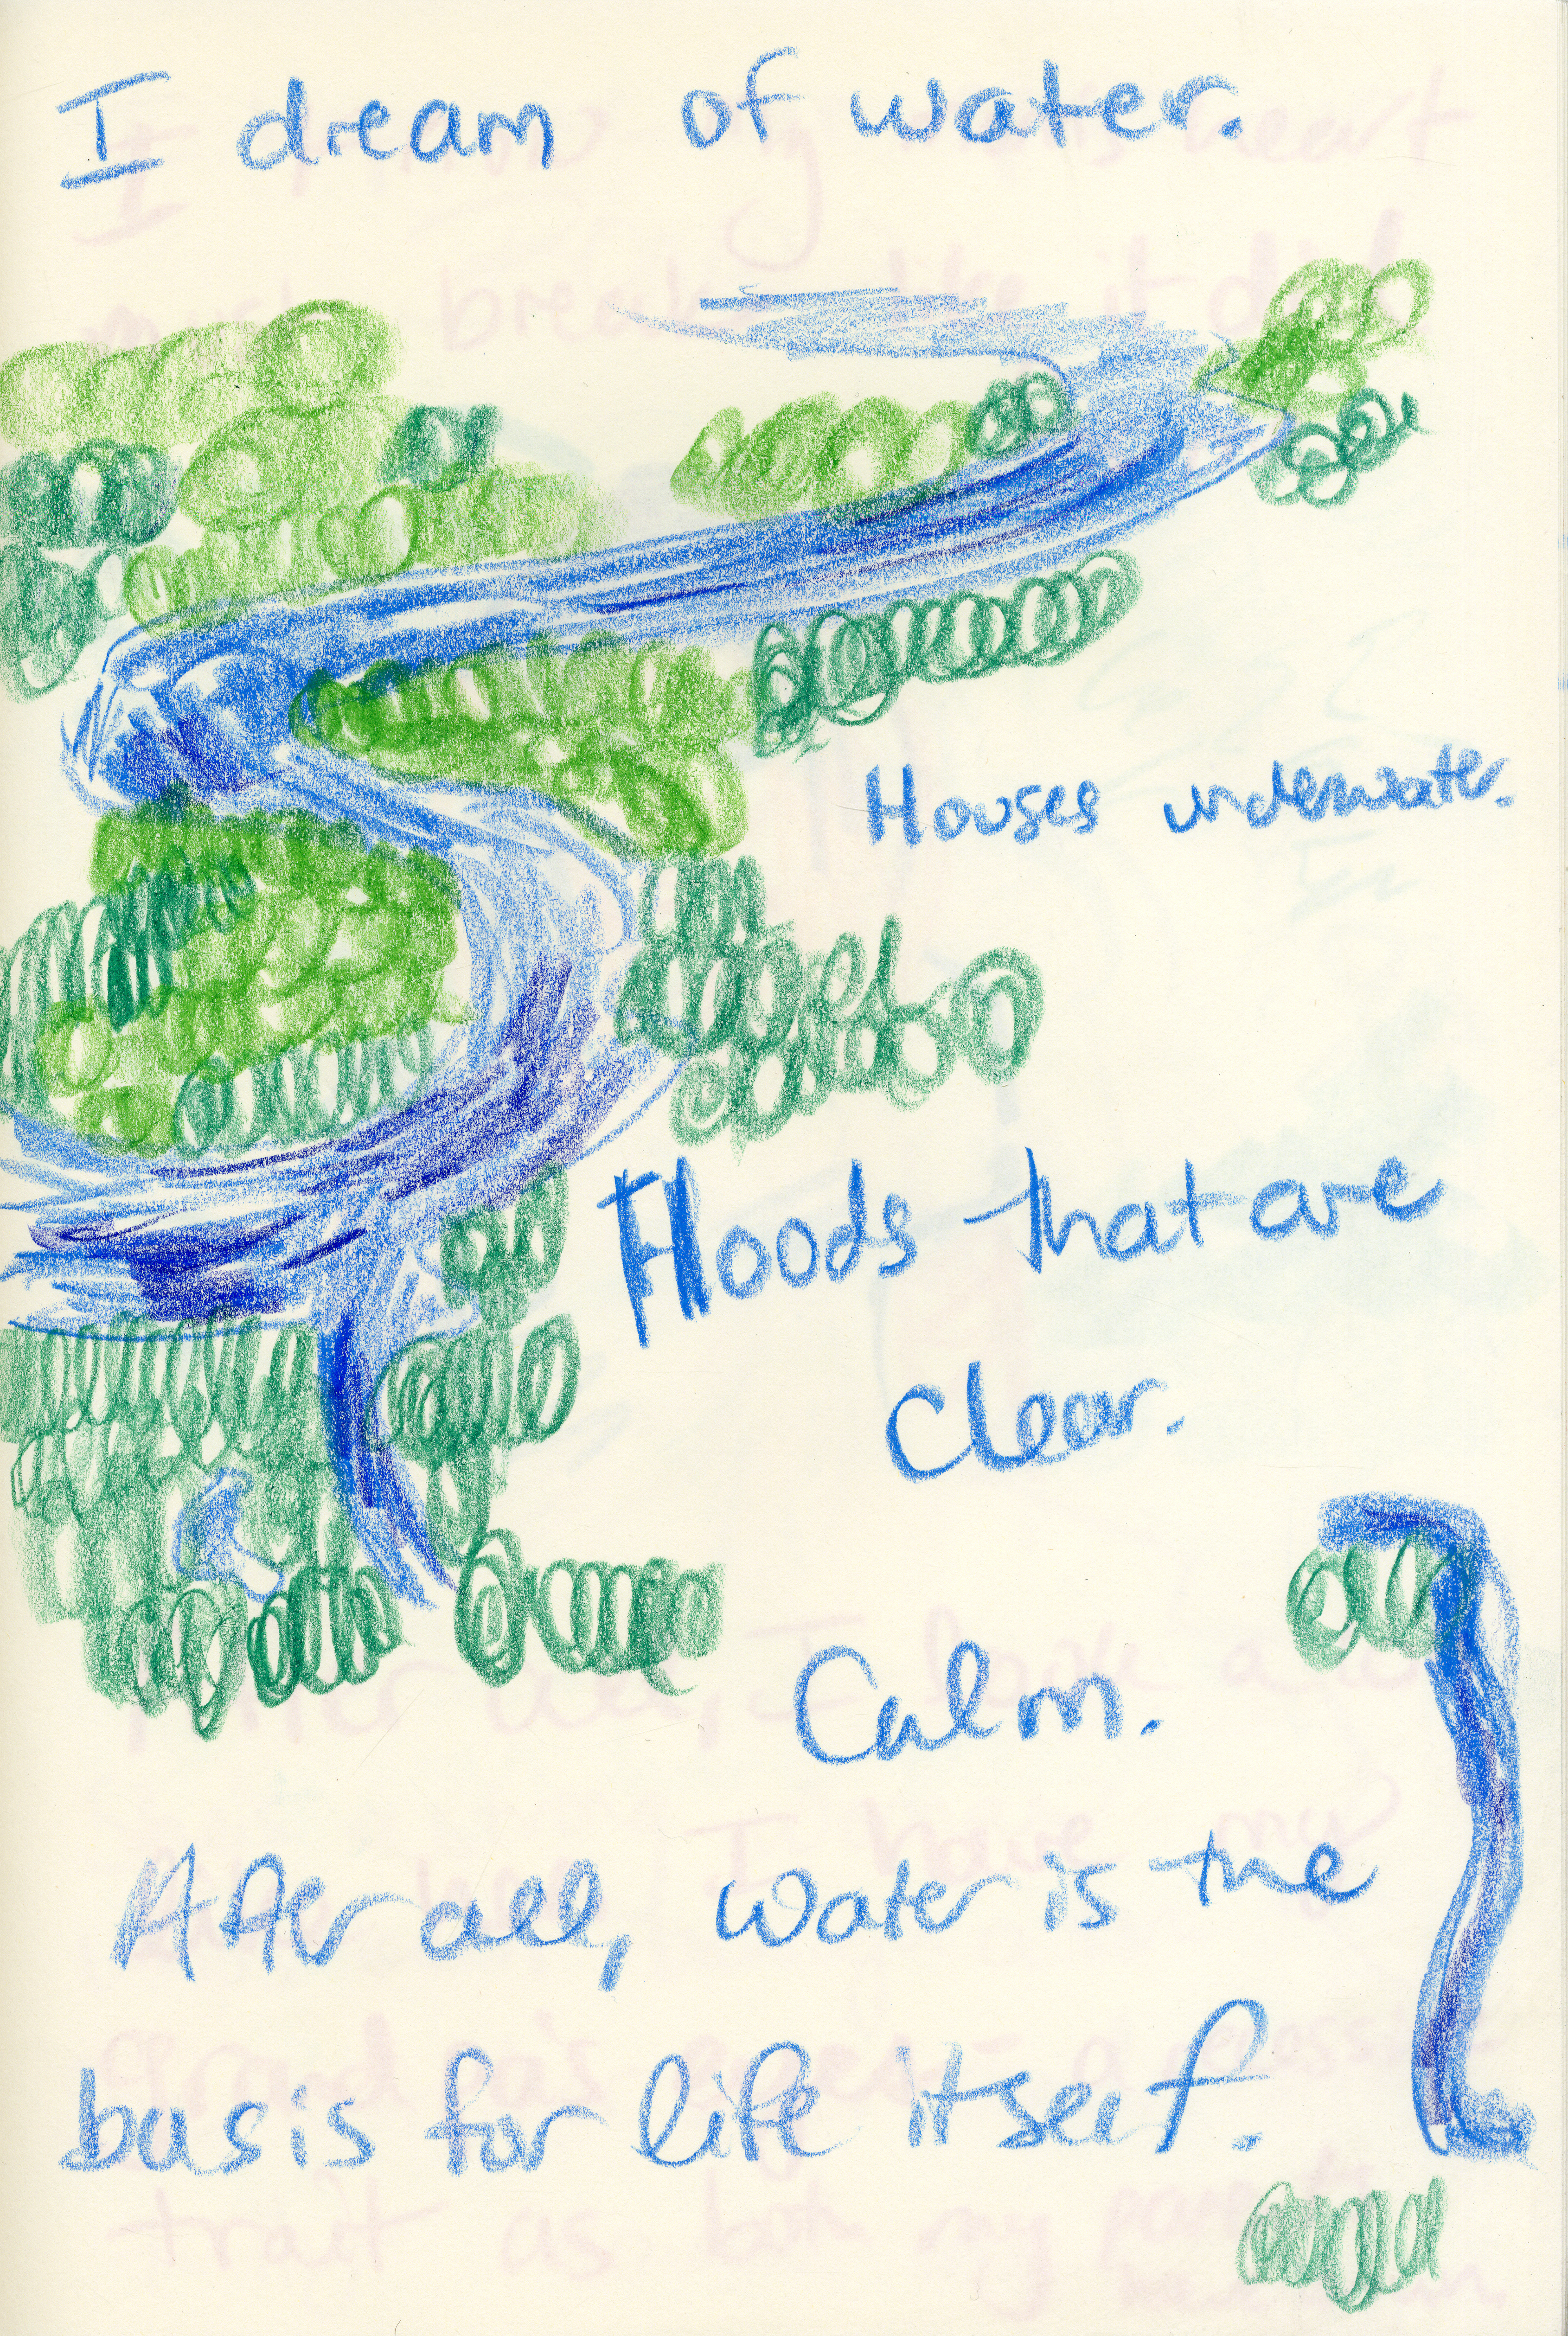 I dream of water.
Houses underwater.
Floods that are
clear.
Calm.
After all, water is the
basis for life itself.